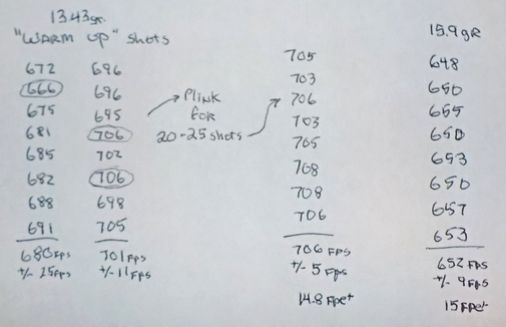 13.43gr.
"WARM UP" Shots
672 696
666 696
675 695
681 706
685 702
682 706
688 698
691 705
680 FPS 701 FPS
+/- 25FPS +/- 11FPS
Plink
for
20-25 shots
705
703
706
703
705
708
708
706
706 FPS
+/- 5 FPS
14.8 FPE+
15.9gR
648
650
655
650
653
650
657
653
652 FPS
+/- 9FPS
15 FPE+